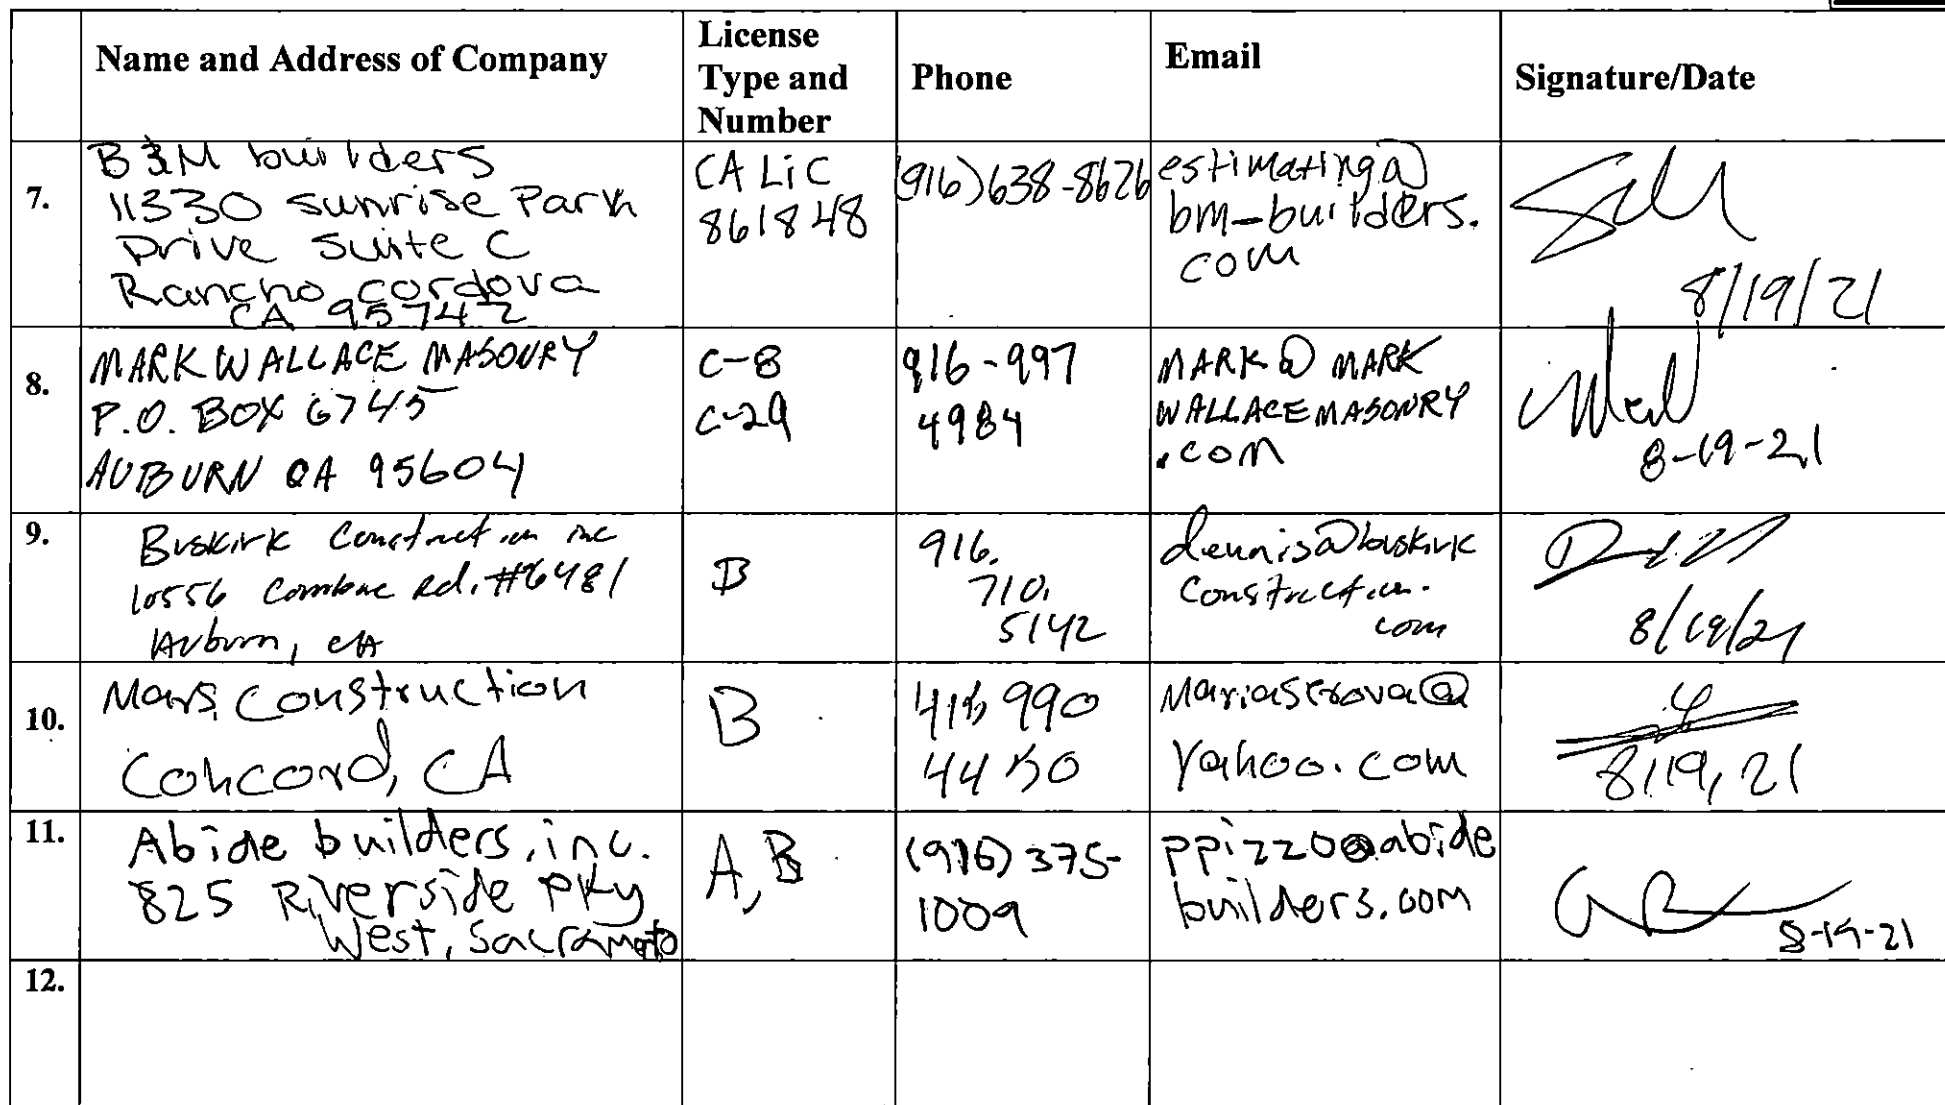 Name and Address of Company
License
Type and
Number
Phone
Email
Signature/Date
7.
B&M builders
11330 Sunrise Park
Drive Suite C
Rancho Cordova
CA 95742
CA Lic
861848
(916)638-8626
estimating@
bm-builders.
com
8/19/21
8.
MARK WALLACE MASONRY
P.O. BOX 6745
AUBURN CA 95604
C-8
C-29
916-997
4984
MARK@MARK
WALLACEMASONRY
.com
8-19-21
9.
Buskirk Construction inc
10556 Combie Rd. #6481
Auburn, CA
B
916.
710.
5142
dennis@buskirk
Construction.
com
8/19/21
10.
Mars Construction
Concord, CA
B
415 990
4450
Yahoo.com
8/19, 21
11.
Abide builders, inc.
825 Riverside Pky
West, Sacramento
A, B
(916) 375-
1009
ppizzo@abide
builders.com
8-19-21
12.